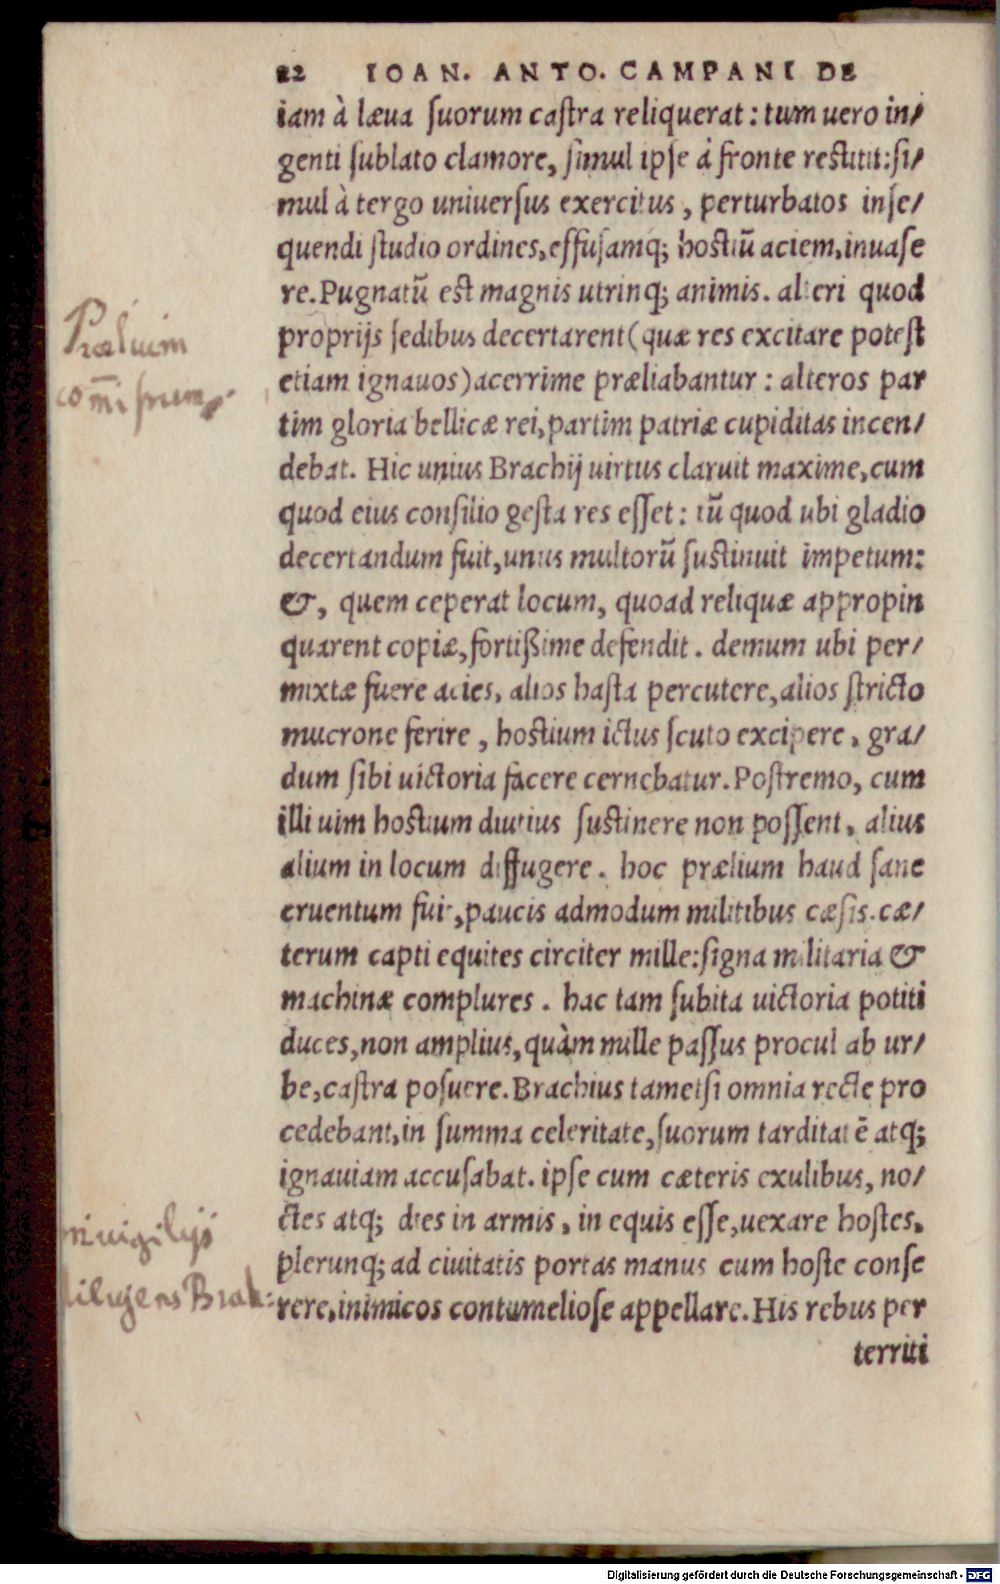 22 IOAN. ANTO. CAMPANI DE
iam à læua suorum castra reliquerat: tum uero in/
genti sublato clamore, simul ipse à fronte restitit: si/
mul à tergo uniuersus exercitus, perturbatos inse/
quendi studio ordines, effusamq; hostiũ aciem, inuase
re. Pugnatũ est magnis utrinq; animis. alteri quod
proprijs sedibus decertarent (quæ res excitare potest
etiam ignauos) acerrime præliabantur: alteros par
tim gloria bellicæ rei, partim patriæ cupiditas incen/
debat. Hic unius Brachij uirtus claruit maxime, cum
quod eius consilio gesta res esset: tũ quod ubi gladio
decertandum fuit, unus multorũ sustinuit impetum:
&, quem ceperat locum, quoad reliquæ appropin
quarent copiæ, fortißime defendit. demum ubi per/
mixtæ fuere acies, alios hasta percutere, alios stricto
mucrone ferire, hostium ictus scuto excipere, gra/
dum sibi uictoria facere cernebatur. Postremo, cum
illi uim hostium diutius sustinere non possent, alius
alium in locum diffugere. hoc prælium haud sane
cruentum fuit, paucis admodum militibus cæsis. cæ/
terum capti equites circiter mille: signa militaria &
machinæ complures. hac tam subita uictoria potiti
duces, non amplius, quàm mille passus procul ab ur/
be, castra posuere. Brachius tametsi omnia recte pro
cedebant, in summa celeritate, suorum tarditatẽ atq;
ignauiam accusabat. ipse cum cæteris exulibus, no/
ctes atq; dies in armis, in equis esse, uexare hostes,
plerunq; ad ciuitatis portas manus cum hoste conse
rere, inimicos contumeliose appellare. His rebus per
territi
Prælium
in uigilijs
Digitalisierung gefördert durch die Deutsche Forschungsgemeinschaft - DFG